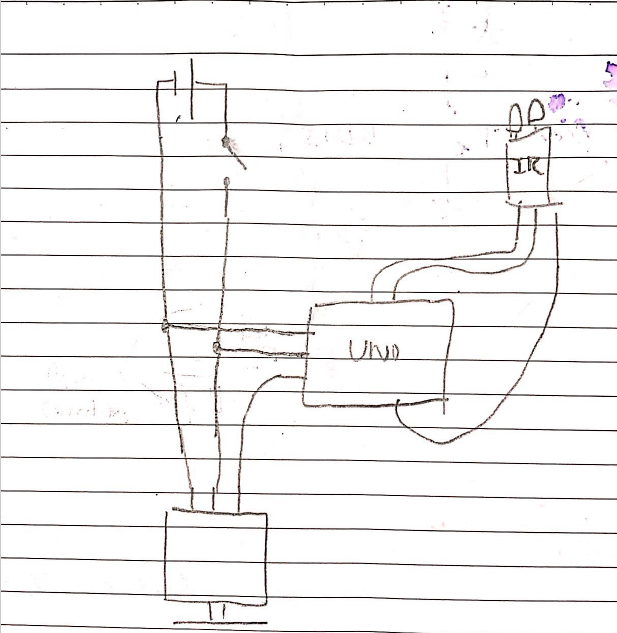 IR
UNO